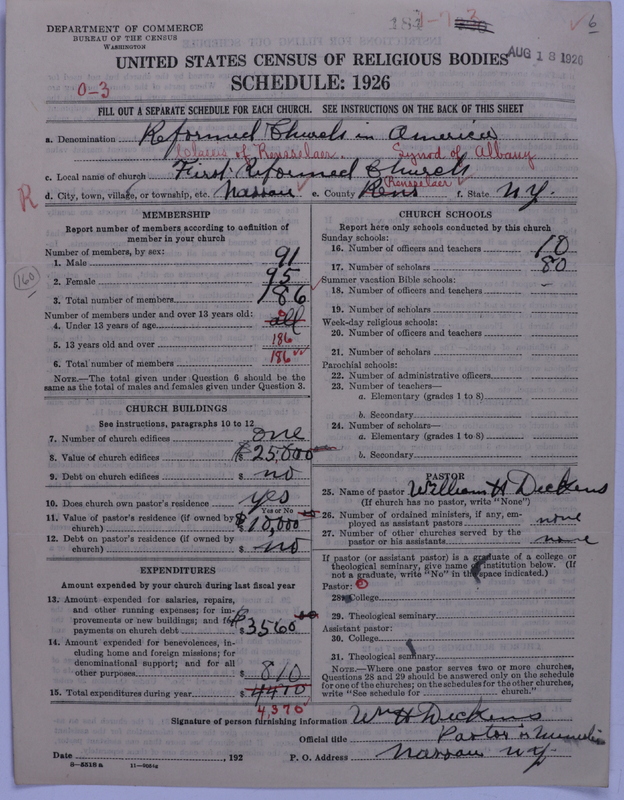 DEPARTMENT OF COMMERCE
BUREAU OF THE CENSUS
WASHINGTON
6
AUG 18 1926
UNITED STATES CENSUS OF RELIGIOUS BODIES
SCHEDULE: 1926
0-3
FILL OUT A SEPARATE SCHEDULE FOR EACH CHURCH. SEE INSTRUCTIONS ON THE BACK OF THIS SHEET
a. Denomination Reformed Church in America
Classis of Rensselaer. Synod of Albany
c. Local name of church First Reformed Church
R
d. City, town, village, or township, etc. Nassau e. County Rens Rensselaer f. State N.Y.
MEMBERSHIP
Report number of members according to definition of
member in your church
Number of members, by sex:
1. Male 91
2. Female 95
160
3. Total number of members 186
Number of members under and over 13 years old:
4. Under 13 years of age all
5. 13 years old and over 186
6. Total number of members 186
NOTE.—The total given under Question 6 should be the
same as the total of males and females given under Question 3.
CHURCH BUILDINGS
See instructions, paragraphs 10 to 12
7. Number of church edifices one
8. Value of church edifices $25,000
9. Debt on church edifices $ no
10. Does church own pastor's residence yes
Yes or No
11. Value of pastor's residence (if owned by
church) $10,000
12. Debt on pastor's residence (if owned by
church) $ no
EXPENDITURES
Amount expended by your church during last fiscal year
13. Amount expended for salaries, repairs,
and other running expenses; for im-
provements or new buildings; and for
payments on church debt $3560
14. Amount expended for benevolences, in-
cluding home and foreign missions; for
denominational support; and for all
other purposes $ 810
15. Total expenditures during year $ 4410
4,370
CHURCH SCHOOLS
Report here only schools conducted by this church
Sunday schools:
16. Number of officers and teachers 10
17. Number of scholars 80
Summer vacation Bible schools:
18. Number of officers and teachers
19. Number of scholars
Week-day religious schools:
20. Number of officers and teachers
21. Number of scholars
Parochial schools:
22. Number of administrative officers
23. Number of teachers—
a. Elementary (grades 1 to 8)
b. Secondary
24. Number of scholars—
a. Elementary (grades 1 to 8)
b. Secondary
PASTOR
25. Name of pastor William H Dickens
(If church has no pastor, write "None")
26. Number of ordained ministers, if any, em-
ployed as assistant pastors none
27. Number of other churches served by the
pastor or his assistants none
If pastor (or assistant pastor) is a graduate of a college or
theological seminary, give name of institution below. (If
not a graduate, write "No" in the space indicated.)
Pastor:
28. College
29. Theological seminary
Assistant pastor:
30. College
31. Theological seminary
NOTE.—Where one pastor serves two or more churches,
Questions 28 and 29 should be answered only on the schedule
for one of the churches; on the schedules for the other churches,
write "See schedule for church."
Signature of person furnishing information Wm H Dickens
Official title Pastor
Date , 192 P. O. Address Nassau N.Y.
8-5518a